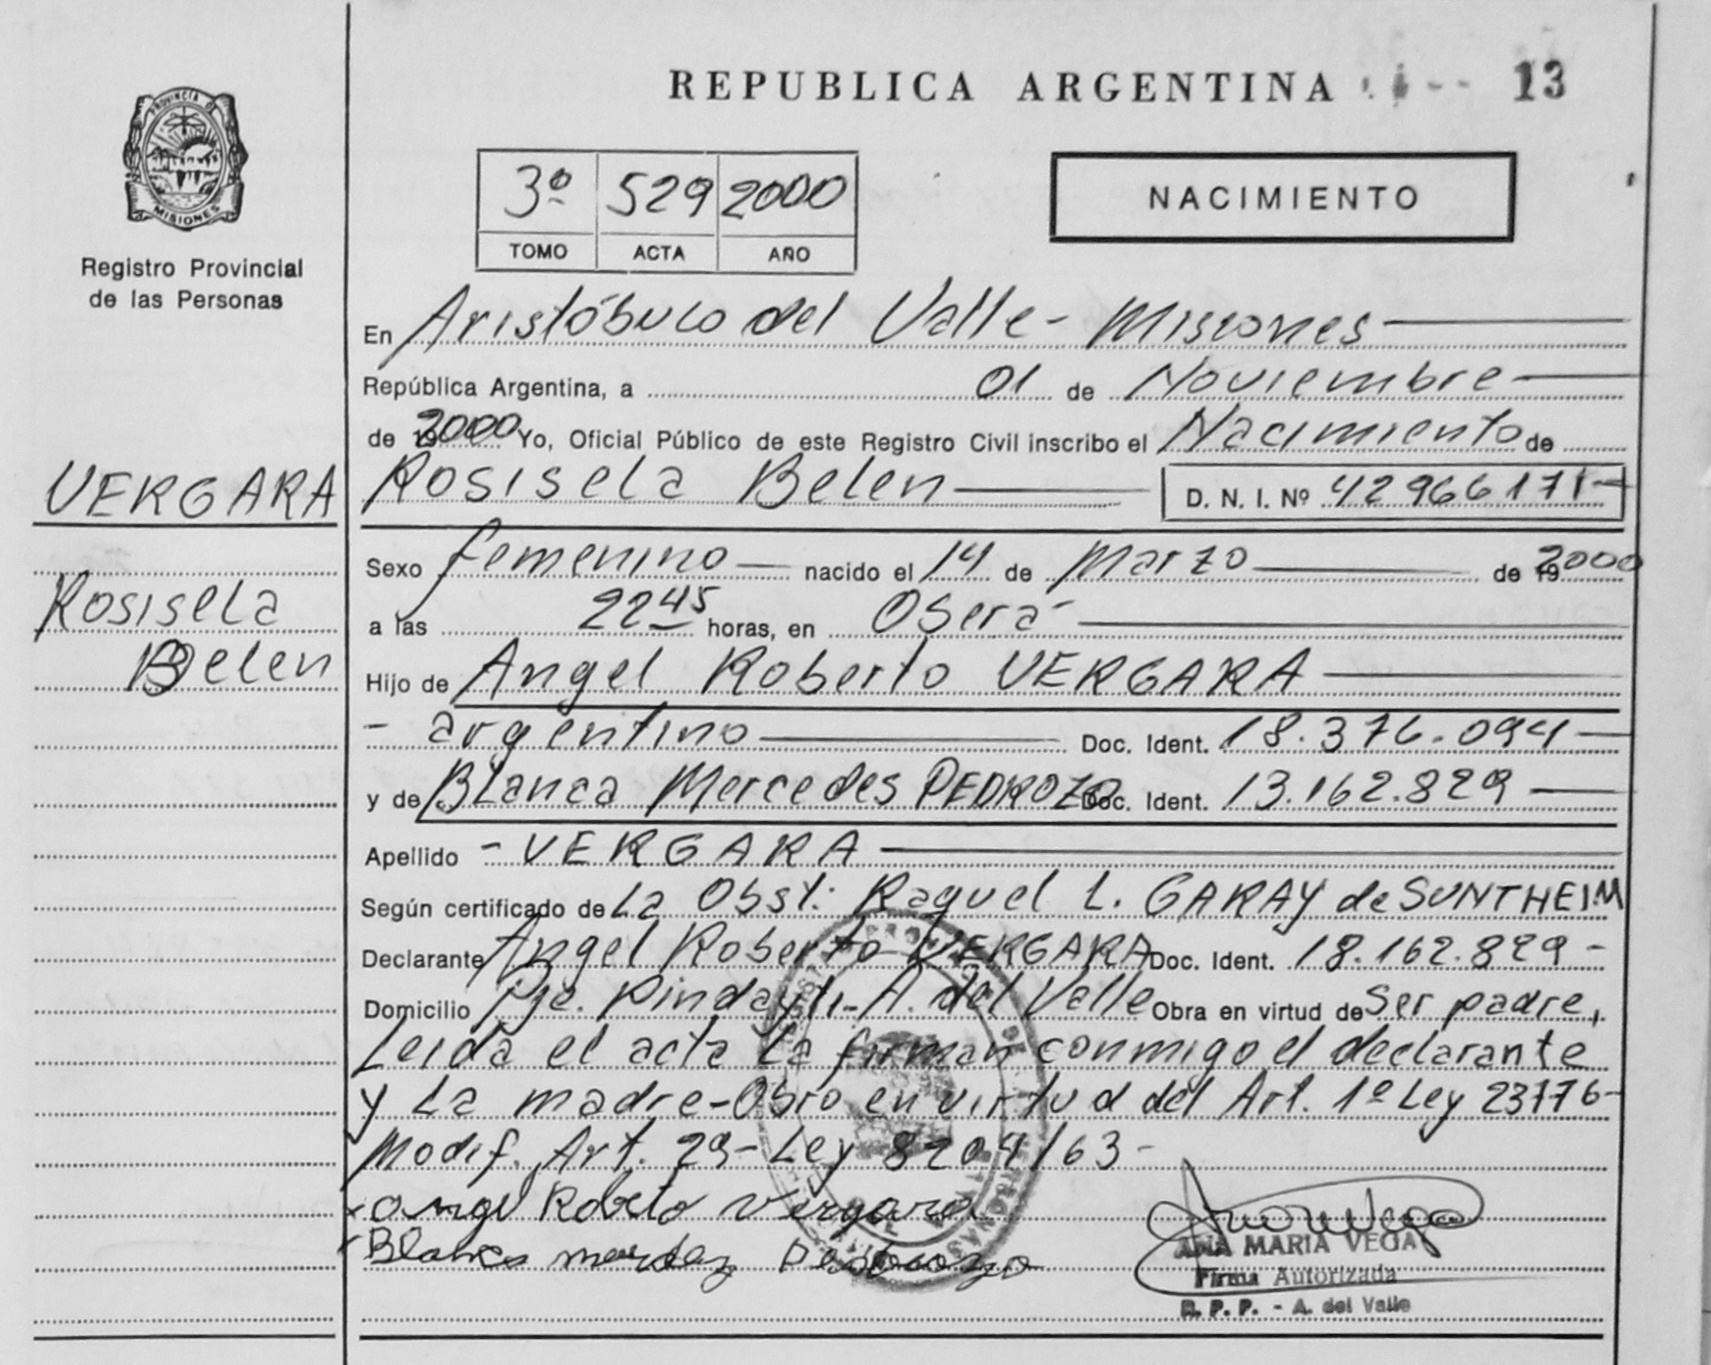 REPUBLICA ARGENTINA 13
PROVINCIA DE
MISIONES
Registro Provincial
de las Personas
3º 529 2000
TOMO ACTA AÑO
NACIMIENTO
En Aristóbulo del Valle - Misiones
República Argentina, a 01 de Noviembre
de 2000 Yo, Oficial Público de este Registro Civil inscribo el Nacimiento de
VERGARA
Rosisela Belen D. N. I. Nº 42966171-
Sexo femenino nacido el 14 de Marzo de 2000
Rosisela
Belen
a las 22 45 horas, en Oberá
Hijo de Angel Roberto VERGARA
- argentino Doc. Ident. 18.376.094
y de Blanca Mercedes PEDROZO Doc. Ident. 13.162.829
Apellido - VERGARA
Según certificado de La Obst: Raquel L. GARAY de SUNTHEIM
Declarante Angel Roberto VERGARA Doc. Ident. 18.162.829 -
Domicilio Pje. Pindayti - A. del Valle Obra en virtud de ser padre,
Leida el acta la firman conmigo el declarante
y La madre - Obro en virtud del Art. 1º Ley 23776-
Modif. Art. 29 - Ley 8204/63 -
Angel Roberto Vergara
Blanca
ANA MARIA VEGA
Firma Autorizada
R. P. P. - A. del Valle